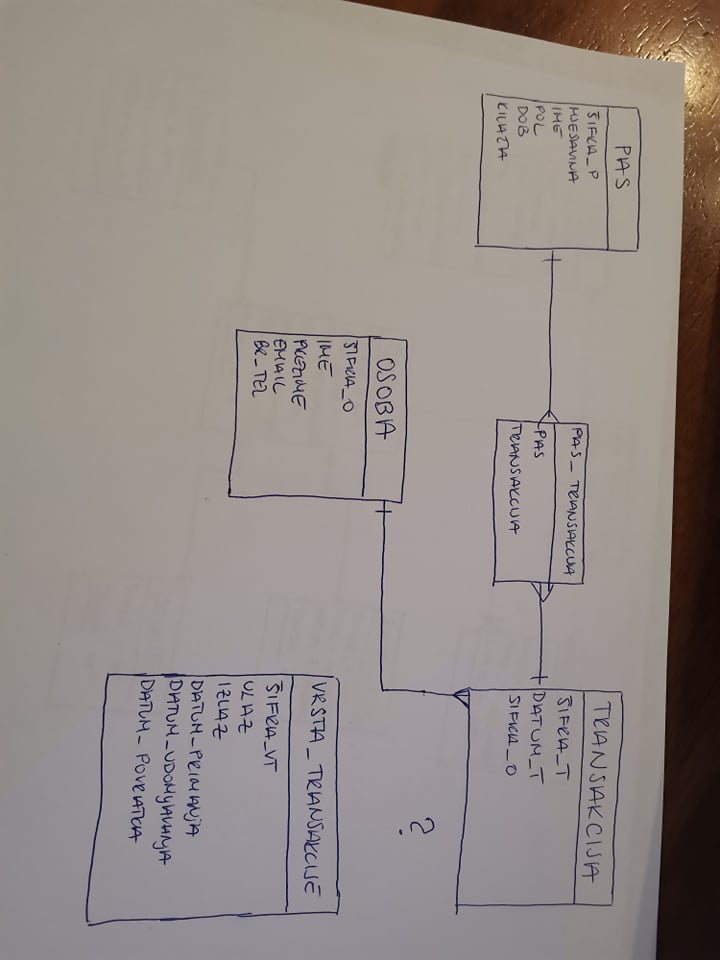 PAS
ŠIFRA_P
MJEŠAVINA
IME
POL
DOB
KILAŽA
PAS_TRANSAKCIJA
PAS
TRANSAKCIJA
TRANSAKCIJA
ŠIFRA_T
DATUM_T
ŠIFRA_O
?
OSOBA
ŠIFRA_O
IME
PREZIME
EMAIL
BR_TEL
VRSTA_TRANSAKCIJE
ŠIFRA_VT
ULAZ
IZLAZ
DATUM_PRIMANJA
DATUM_UDOMJAVANJA
DATUM_POVRATKA